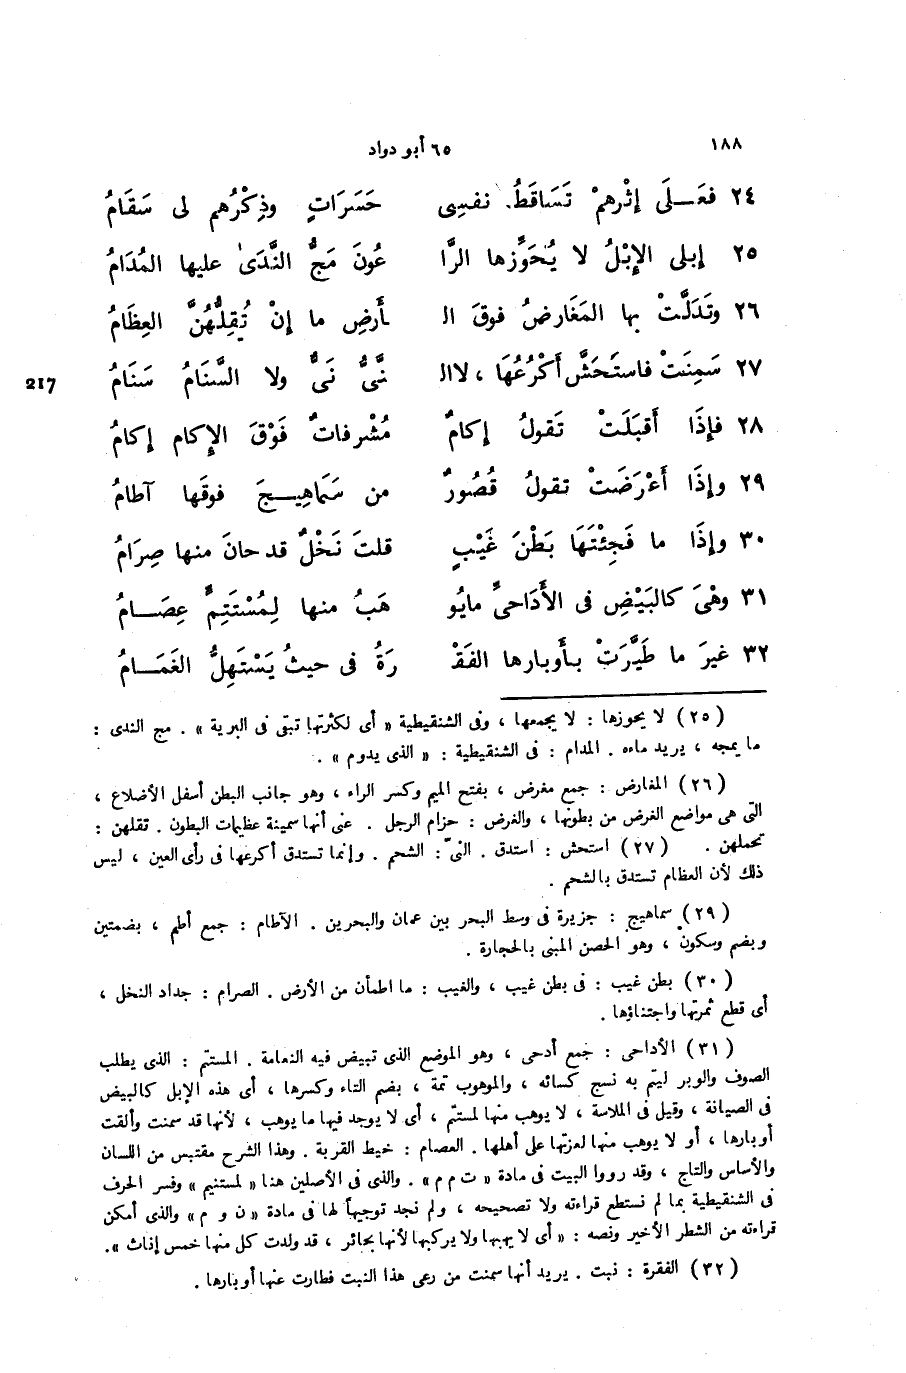 ١٨٨
٦٥ أبو دواد
٢٤ فعَــلَى إثْرهمْ تَسَاقَطُ. نفسِى حَسَرَاتٍ وذِكْرُهم لى سَقَامُ
٢٥ إبلى الإبْلُ لا يُحَوِّزها الرَّا عُونَ مَجُّ النَّدَىٰ عليها المُدَامُ
٢٦ وتَدَلَّتْ بها المَغَارضُ فوقَ الـ ـأَرضِ ما إنْ تُقِلُّهُنَّ العِظَامُ
٢٧ سَمِنَتْ فاستَحَشَّ أَكْرُعُهَا ، لاالـ نَّىُّ نَىٌّ ولا السَّنَامُ سَنَامُ
217
٢٨ فإذَا أقبَلَتْ تَقولُ إكامٌ مُشْرفاتٌ فَوْقَ الإكام إكامُ
٢٩ وإذَا أَعْرَضَتْ تقولُ قُصُورٌ من سَمَاهِيــجَ فوقَها آطامُ
٣٠ وإذَا ما فَجِئْتَهَا بَطْنَ غَيْبٍ قلتَ نَخْلٌ قد حانَ منها صِرَامُ
٣١ وهْىَ كالبَيْضِ فى الأَدَاحىِّ مايُو هَبُ منها لِمُسْتَتِمٍّ عِصَــامُ
٣٢ غيرَ ما طَيَّرَتْ بأَوبارها الفَقْـ ـرَةُ فى حيثُ يَسْتَهِلُّ الغَمَــامُ
(٢٥) لا يحوزها : لا يجمعها ، وفى الشنقيطية « أى لكثرتها تبقى فى البرية » . مج الندى :
ما يمجه ، يريد ماءه . المدام : فى الشنقيطية : « الذى يدوم » .
(٢٦) المغارض : جمع مغرض ، بفتح الميم وكسر الراء ، وهو جانب البطن أسفل الأضلاع ،
التى هى مواضع الغرض من بطونها ، والغرض : حزام الرحل . عنى أنها سمينة عظيمات البطون . تقلهن :
تحملهن . (٢٧) استحش : استدق . النىّ : الشحم . وإنما تستدق أكرعها فى رأى العين ، ليس
ذلك لأن العظام تستدق بالشحم .
(٢٩) سماهيج : جزيرة فى وسط البحر بين عمان والبحرين . الآطام : جمع أطم ، بضمتين
وبضم وسكون ، وهو الحصن المبنى بالحجارة .
(٣٠) بطن غيب : فى بطن غيب ، والغيب : ما اطمأن من الأرض . الصرام : جداد النخل ،
أى قطع ثمرتها واجتناؤها .
(٣١) الأداحى : جمع أدحى ، وهو الموضع الذى تبيض فيه النعامة . المستتم : الذى يطلب
الصوف والوبر ليتم به نسج كسائه ، والموهوب تمة ، بضم التاء وكسرها ، أى هذه الإبل كالبيض
فى الصيانة ، وقيل فى الملاسة ، لا يوهب منها لمستتم ، أى لا يوجد فيها ما يوهب ، لأنها قد سمنت وألقت
أوبارها ، أو لا يوهب منها لعزتها على أهلها . العصام : خيط القربة . وهذا الشرح مقتبس من اللسان
والأساس والتاج ، وقد رووا البيت فى مادة « ت م م » . والذى فى الأصلين هنا « لمستنيم » وفسر الحرف
فى الشنقيطية بما لم نستطع قراءته ولا تصحيحه ، ولم نجد توجيهاً لها فى مادة « ن و م » والذى أمكن
قراءته من الشطر الأخير ونصه : « أى لا يهبها ولا يركبها لأنها بحائر ، قد ولدت كل منها خمس إناث » .
(٣٢) الفقرة : نبت . يريد أنها سمنت من رعى هذا النبت فطارت عنها أوبارها .